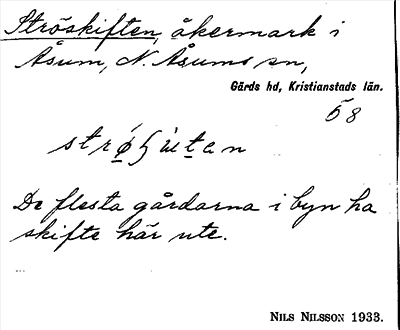 Ströskiften, åkermark i
Åsum, N. Åsums sn,
Gärds hd, Kristianstads län.
58
De flesta gårdarna i byn ha
skifte här ute.
...
NILS NILSSON 1933.